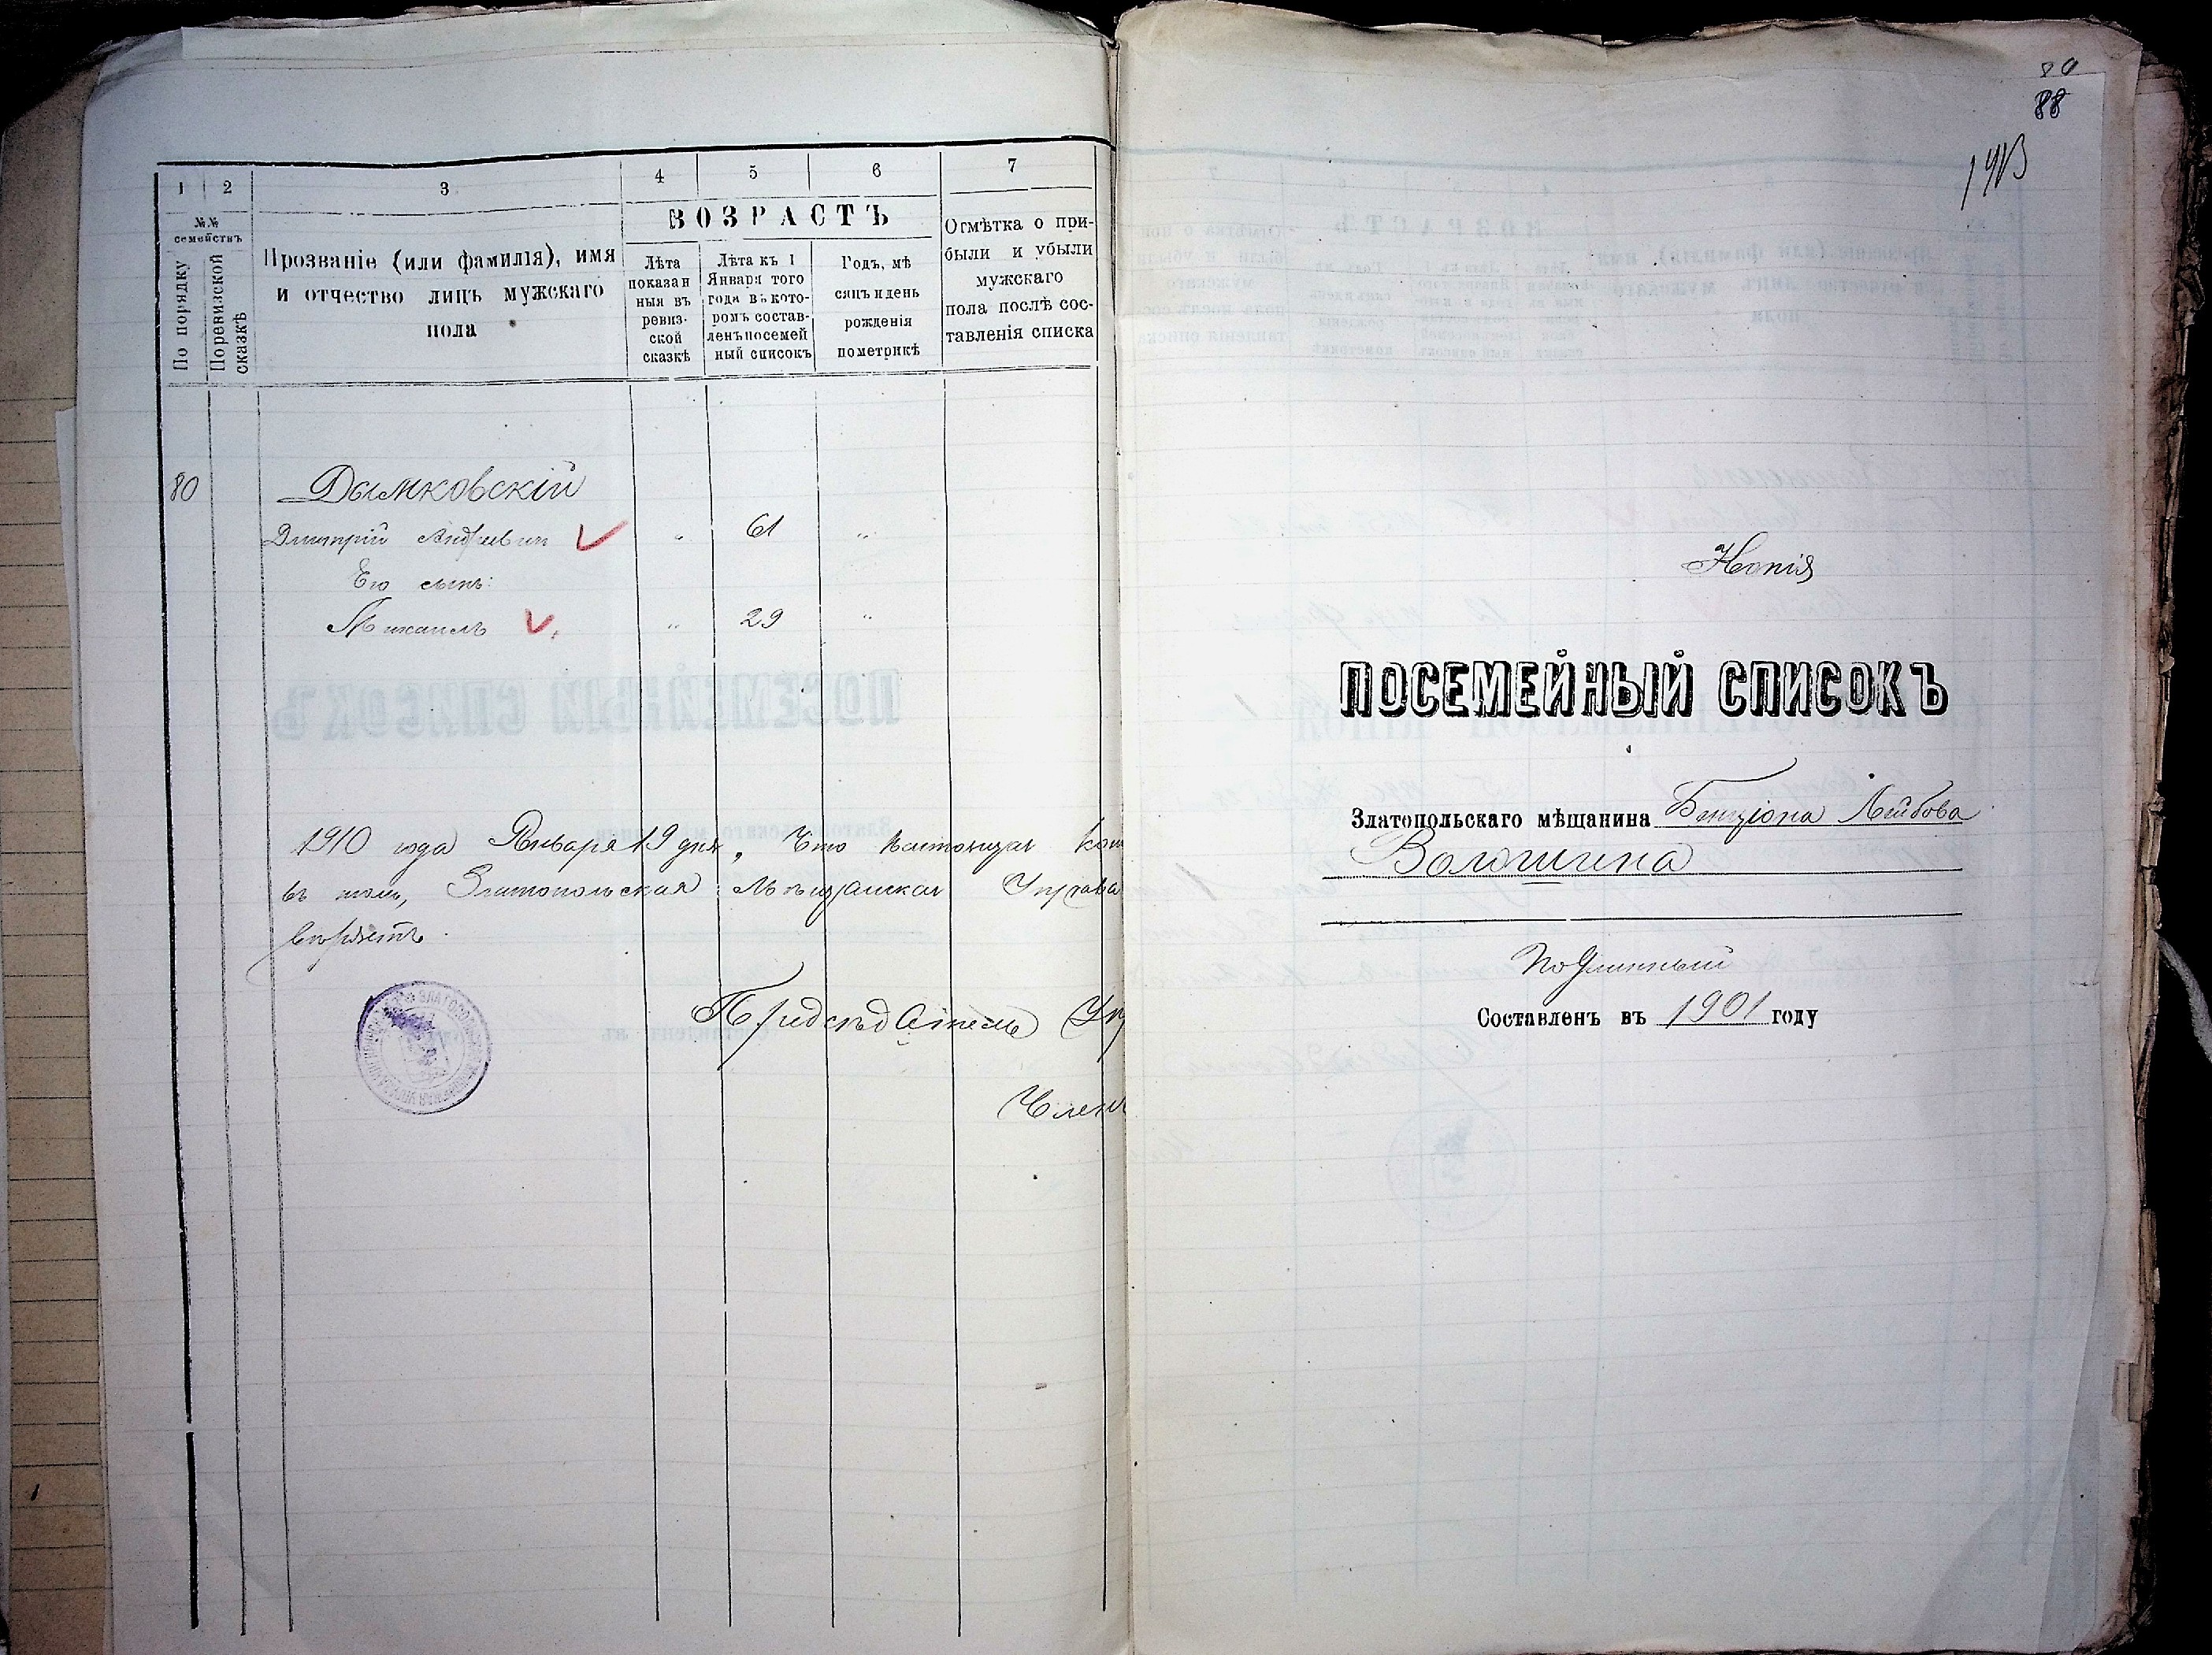 1 2 3 4 5 6 7
№№ семействъ
По порядку
Поревизской сказкѣ
Прозваніе (или фамилія), имя
и отчество лицъ мужскаго
пола
ВОЗРАСТЪ
Лѣта
показан
ныя въ
ревиз-
ской
сказкѣ
Лѣта къ 1
Января того
года въ кото-
ромъ состав-
ленъ посемей
ный списокъ
Годъ, мѣ
сяцъ и день
рожденія
по метрикѣ
Отмѣтка о при-
были и убыли
мужскаго
пола послѣ сос-
тавленія списка
80 Дымковскій
Дмитрій Андреевич " 61 "
Его сынъ:
Михаилъ " 29 "
1910 года Января 19 дня, Что настоящая коп
въ томъ, Златопольская Мѣщанская Управа
вѣряетъ.
Предсѣдатель Уп
Член
88
Копія
ПОСЕМЕЙНЫЙ СПИСОКЪ
Златопольскаго мѣщанина Бенціона Лейбова
Волошина
Подлинный
Составленъ въ 1901 году